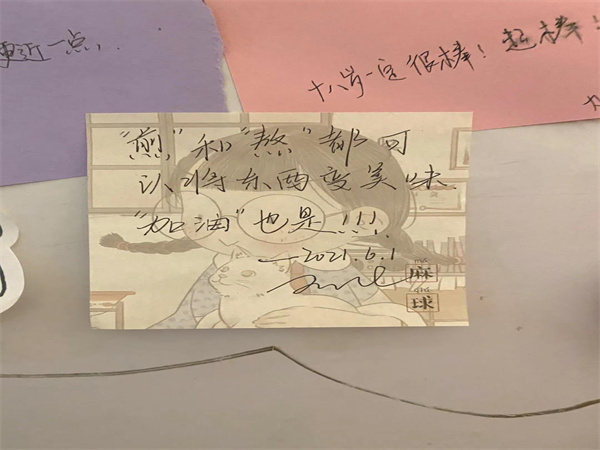 近一点,
十八岁一定很棒！超棒！
"煎"和"熬"都可
以将东西变美味
"加油"也是!!!
—2021.6.1
麻
球